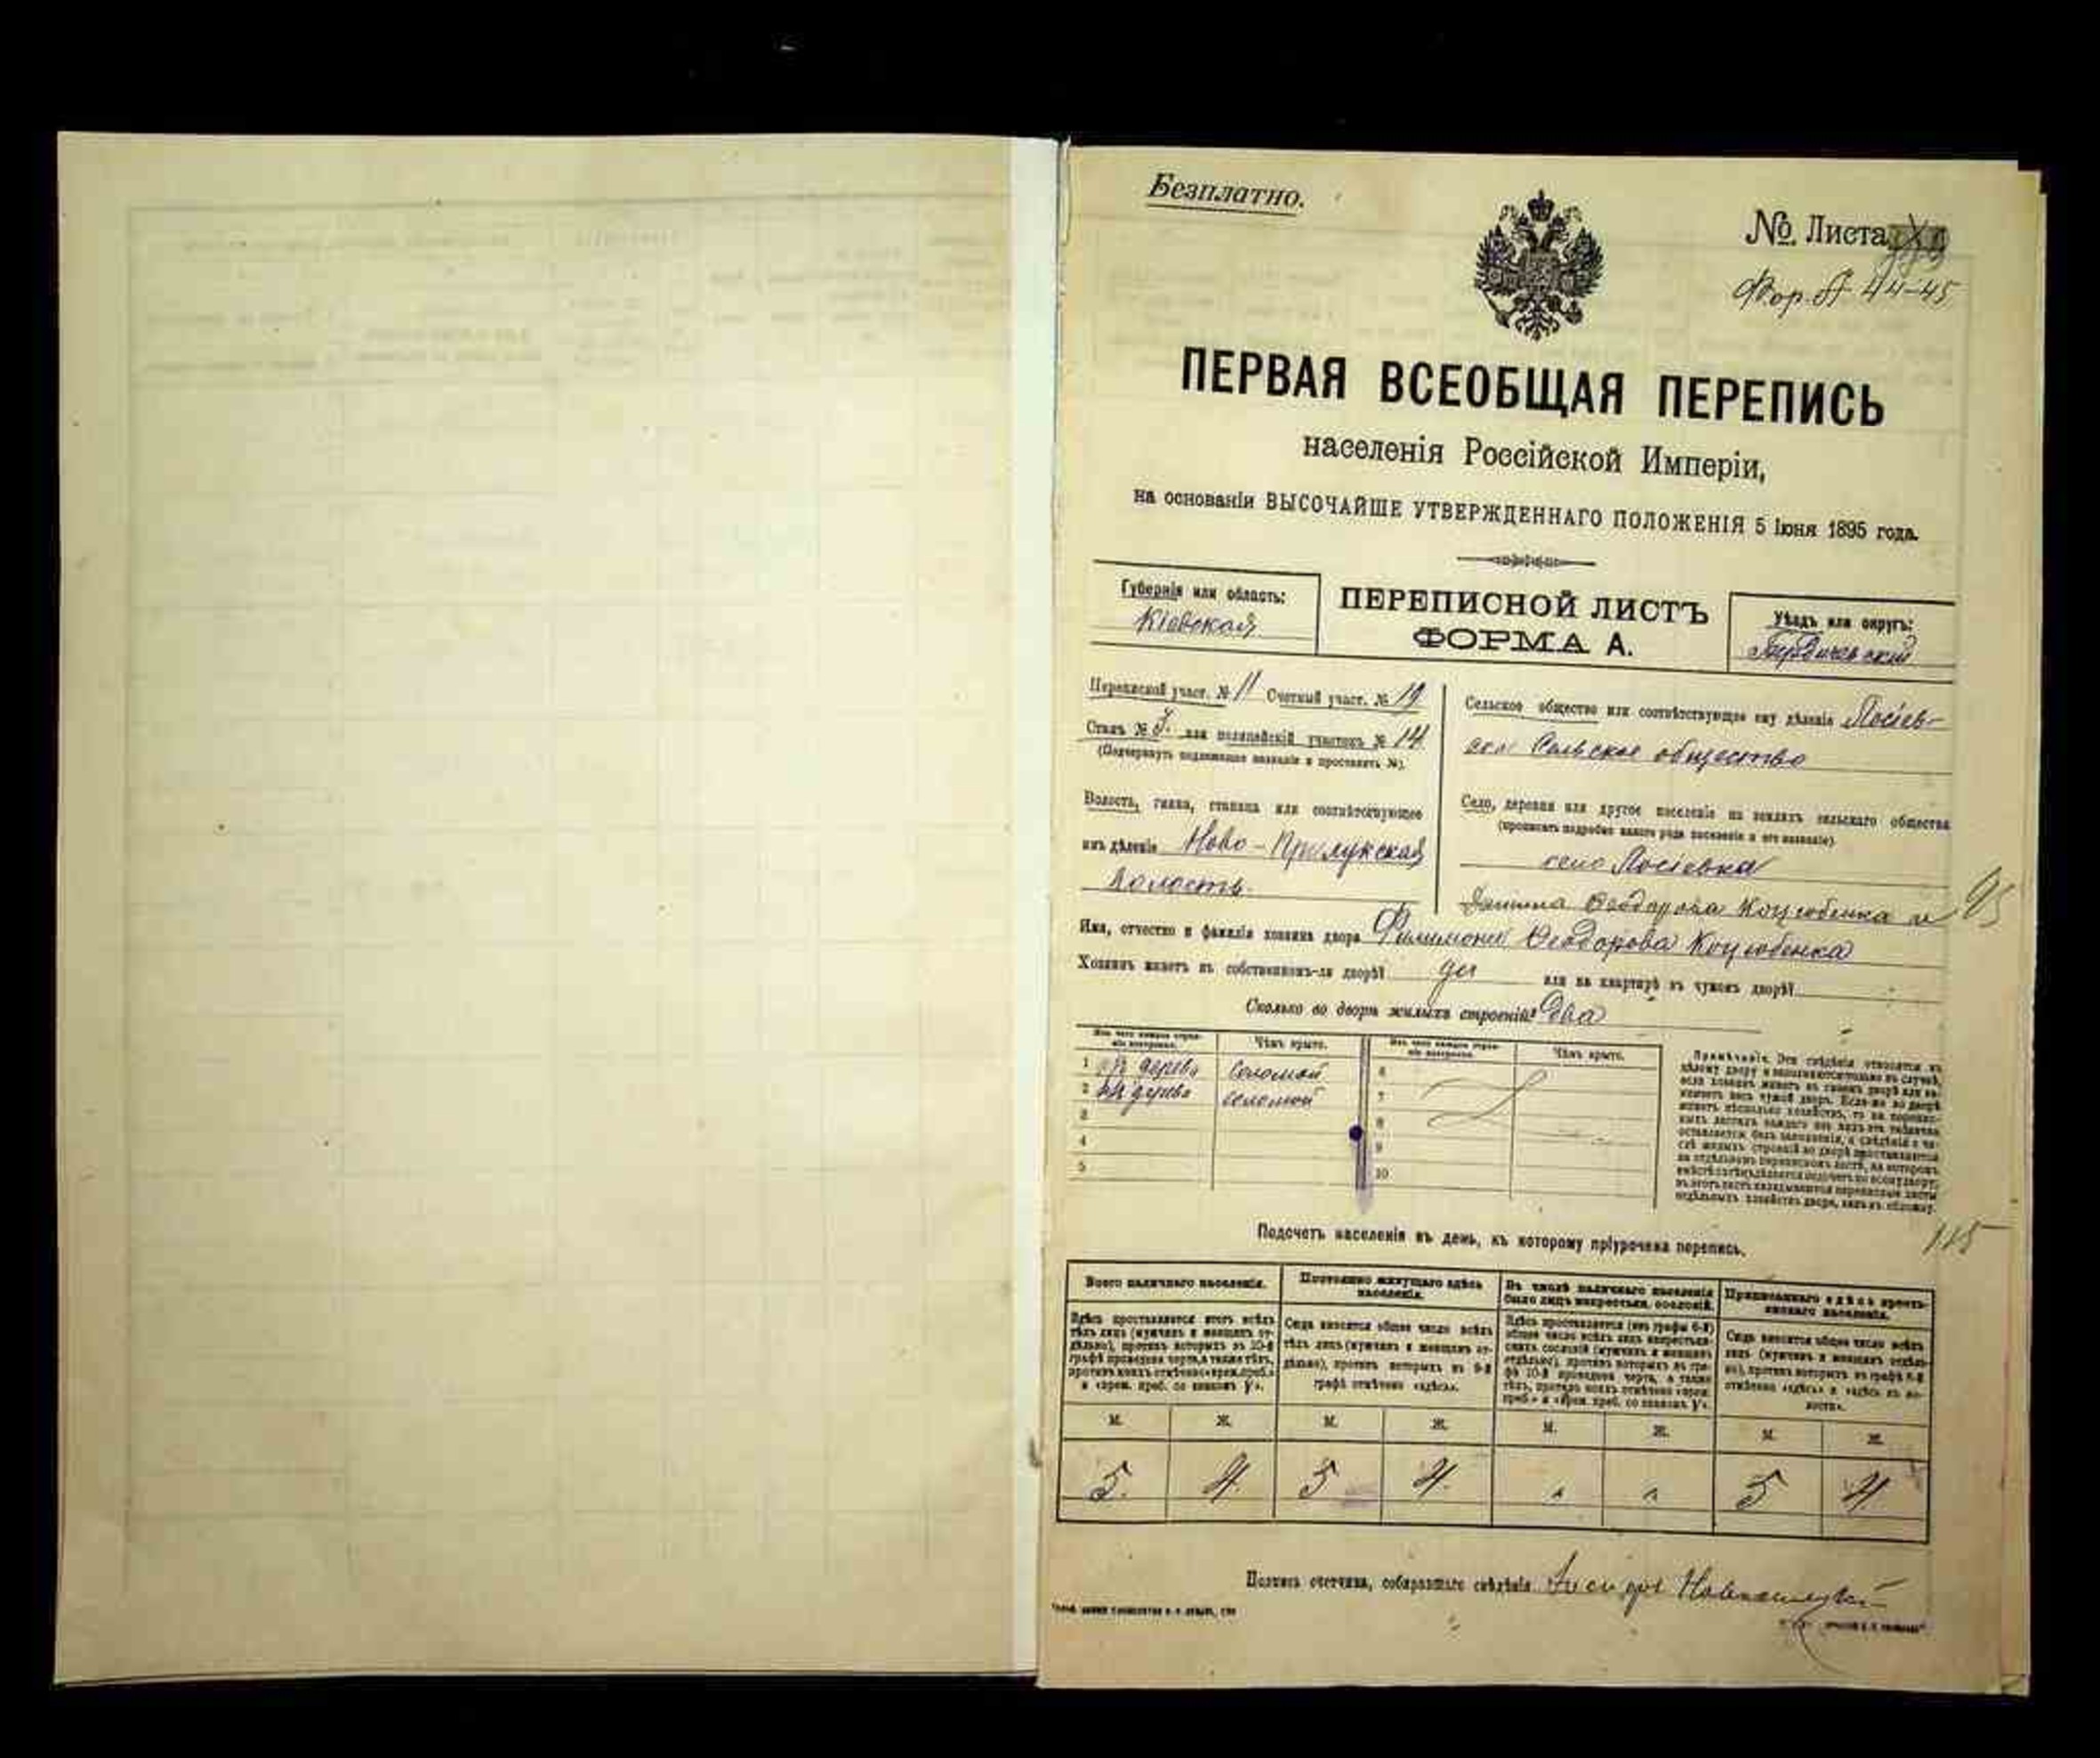 Безплатно.
№ Листа
Фор. А 44-45
ПЕРВАЯ ВСЕОБЩАЯ ПЕРЕПИСЬ
населенія Россійской Имперіи,
на основаніи ВЫСОЧАЙШЕ УТВЕРЖДЕННАГО ПОЛОЖЕНІЯ 5 Іюня 1895 года.
Губернія или область:
Кіевская
ПЕРЕПИСНОЙ ЛИСТЪ
ФОРМА А.
Уѣздъ или округъ:
Бердичевскій
Переписной участ. № 11 Счетный участ. № 19
Станъ № 3. или полицейскій участокъ № 14
(Подчеркнуть подлежащее названіе и проставить №).
Волость, гмина, станица или соотвѣтствующее
имъ дѣленіе Ново-Прилукская
волость.
Сельское общество или соотвѣтствующее ему дѣленіе Лосіев-
ское Сельское общество
Село, деревня или другое поселеніе на земляхъ сельскаго общества
(прописать подробно какого рода поселеніе и его названіе)
село Лосіевка
Ѳеодорова Коцюбенка и
95
Имя, отчество и фамилія хозяина двора Филимона Ѳеодорова Коцюбенка
Хозяинъ живетъ въ собственномъ-ли дворѣ? да или на квартирѣ въ чужомъ дворѣ?
Сколько во дворѣ жилыхъ строеній? два
Изъ чего каждое строеніе построено. Чѣмъ крыто. Изъ чего каждое строеніе построено. Чѣмъ крыто.
1 изъ дерева соломой 6
2 изъ дерева соломой 7
3 8
4 9
5 10
Примѣчаніе. Эти свѣдѣнія относятся къ
цѣлому двору и заполняются только въ случаѣ,
если хозяинъ живетъ въ своемъ дворѣ или за-
нимаетъ весь чужой дворъ. Если-же во дворѣ
живетъ нѣсколько хозяйствъ, то на перепис-
ныхъ листахъ каждаго изъ нихъ эта табличка
оставляется безъ заполненія, а свѣдѣнія о чи-
слѣ жилыхъ строеній во дворѣ проставляются
на отдѣльномъ переписномъ листѣ, на которомъ
вмѣстѣ съ тѣмъ дѣлается подсчетъ по всему двору;
въ этотъ листъ вкладываются переписные листы
отдѣльныхъ хозяйствъ двора, какъ въ обложку.
Подсчетъ населенія въ день, къ которому пріурочена перепись.
115
Всего наличнаго населенія. Постоянно живущаго здѣсь населенія. Въ числѣ наличнаго населенія было лицъ некрестьян. сословій. Приписаннаго здѣсь крестьянскаго населенія.
Здѣсь проставляется итогъ всѣхъ
тѣхъ лицъ (мужчинъ и женщинъ от-
дѣльно), противъ которыхъ въ 10-й
графѣ проведена черта, а также тѣхъ,
противъ коихъ отмѣчено «врем. преб.»
и «врем. преб. со знакомъ V».
Сюда вносится общее число всѣхъ
тѣхъ лицъ (мужчинъ и женщинъ от-
дѣльно), противъ которыхъ въ 9-й
графѣ отмѣчено «здѣсь».
Здѣсь проставляется (изъ графы 6-й)
общее число всѣхъ лицъ некрестьян-
скихъ сословій (мужчинъ и женщинъ
отдѣльно), противъ которыхъ въ гра-
фѣ 10-й проведена черта, а также
тѣхъ, противъ коихъ отмѣчено «врем.
преб.» и «врем. преб. со знакомъ V».
Сюда вносится общее число всѣхъ
лицъ (мужчинъ и женщинъ отдѣль-
но), противъ которыхъ въ графѣ 8-й
отмѣчено «здѣсь» и «здѣсь въ во-
лости».
М. Ж. М. Ж. М. Ж. М. Ж.
5. 4. 5 4. " " 5 4
Подпись счетчика, собиравшаго свѣдѣнія